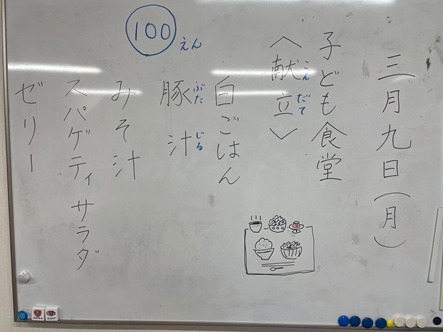 三月九日(月)
子ども食堂
〈献立〉
こんだて
白ごはん
豚汁
ぶたじる
みそ汁
スパゲティサラダ
ゼリー
100えん